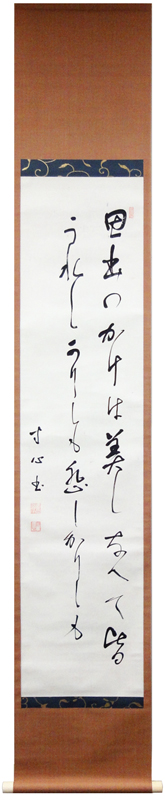 思出のかけは美しなへて皆
うれしかりしも悲しかりしも
寸心書